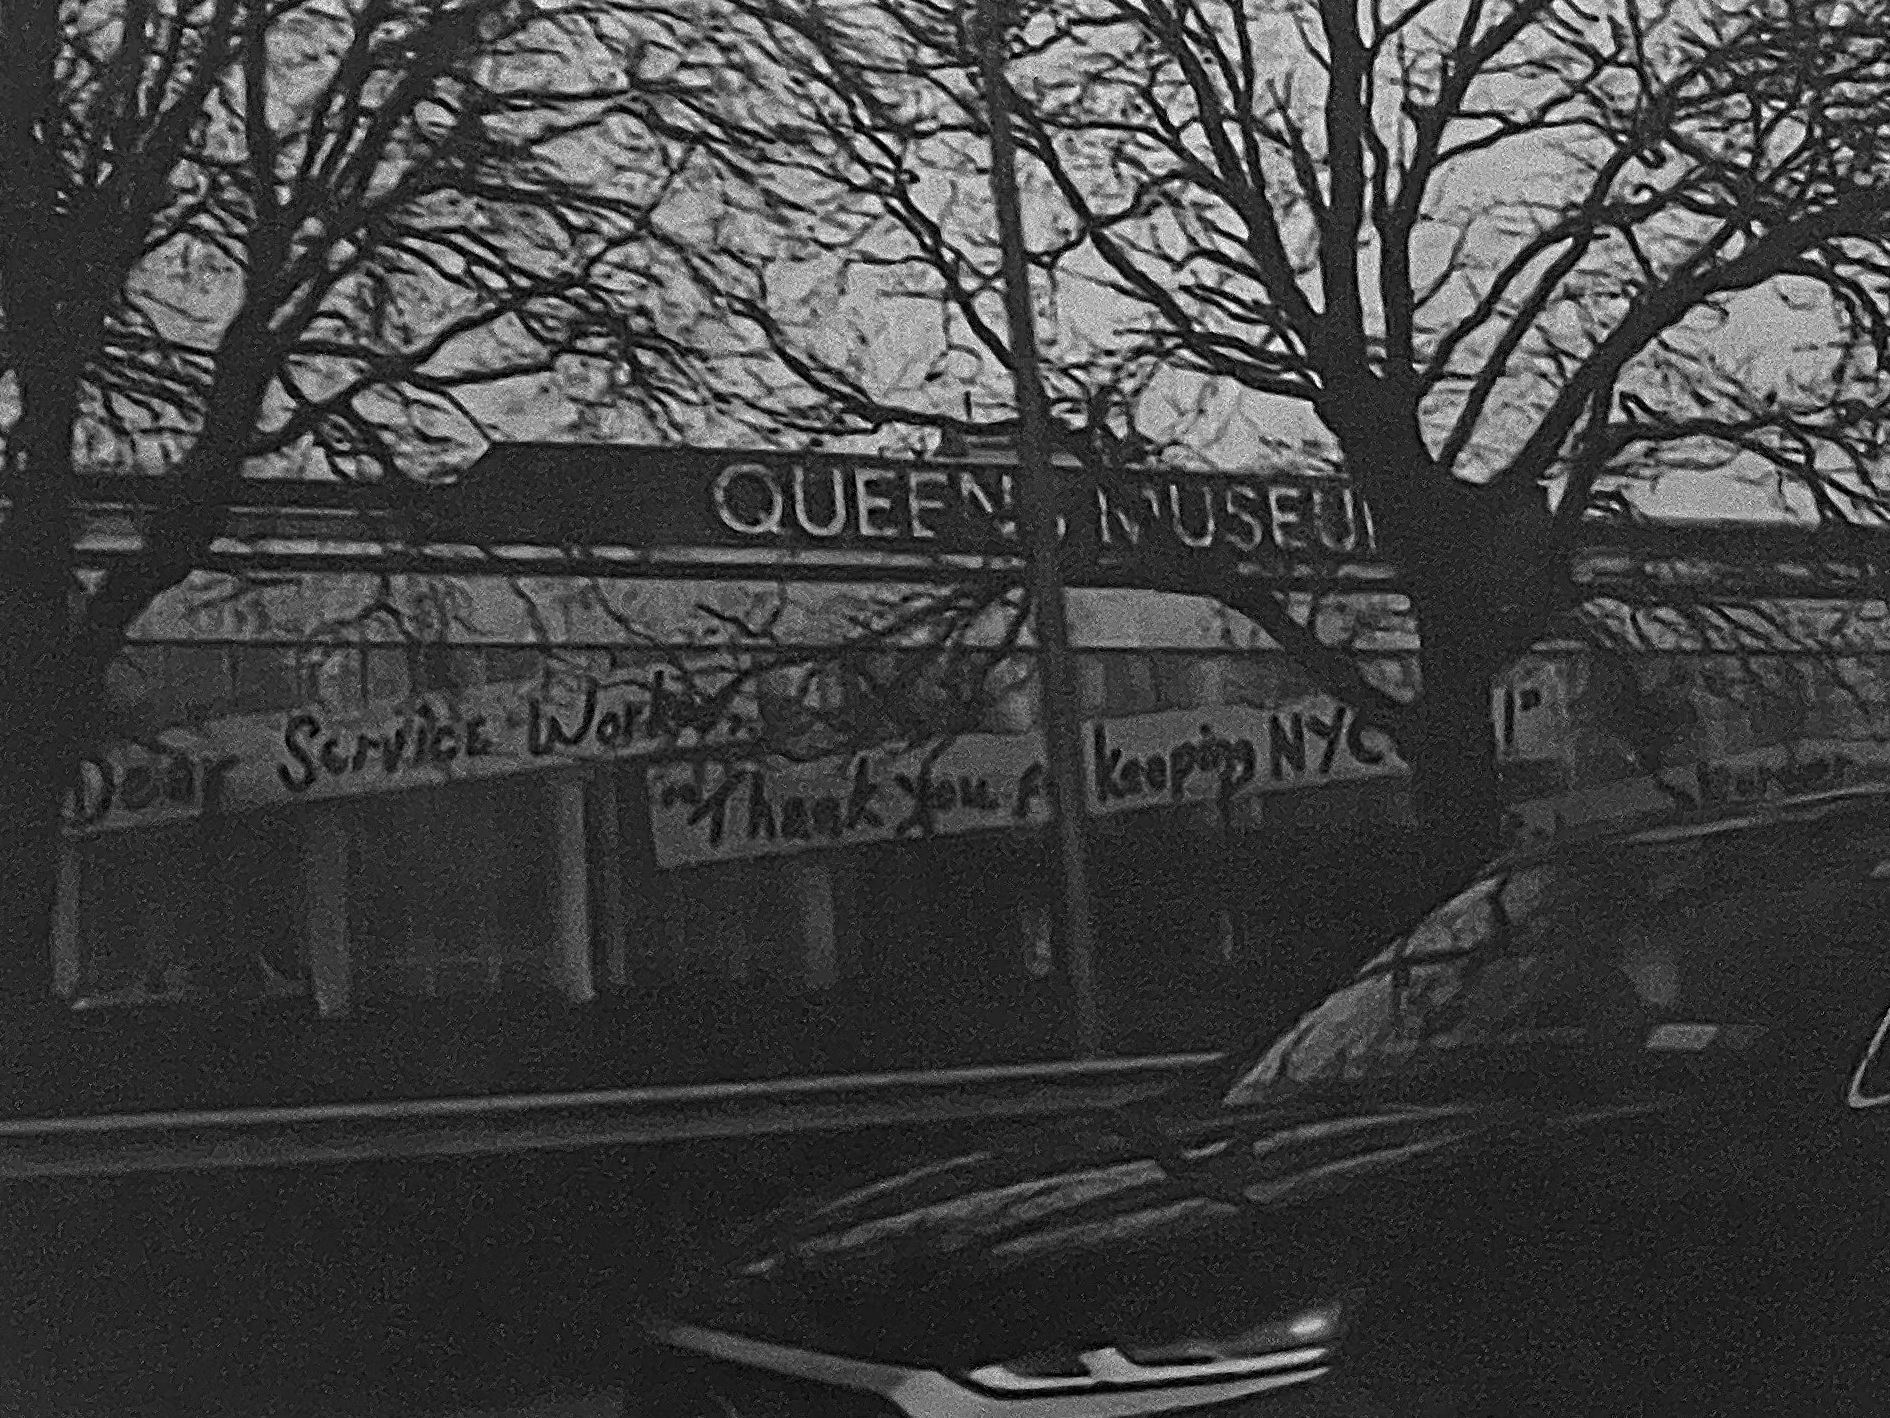 QUEENS MUSEUM
Dear Service Worker
"Thank You for keeping NYC